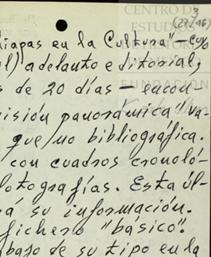 3
(27/46)
CENTRO DE
ESTUD
hiapas en la Cultura" - cuyo
al) adelanto editorial,
s de 20 días - encon-
visión panorámica" va-
que/no bibliográfica.
con cuadros cronoló-
otografías. Esta úl-
rá su información.
fichero "básico".
abajo de su tipo en la
FUNDACIÓN